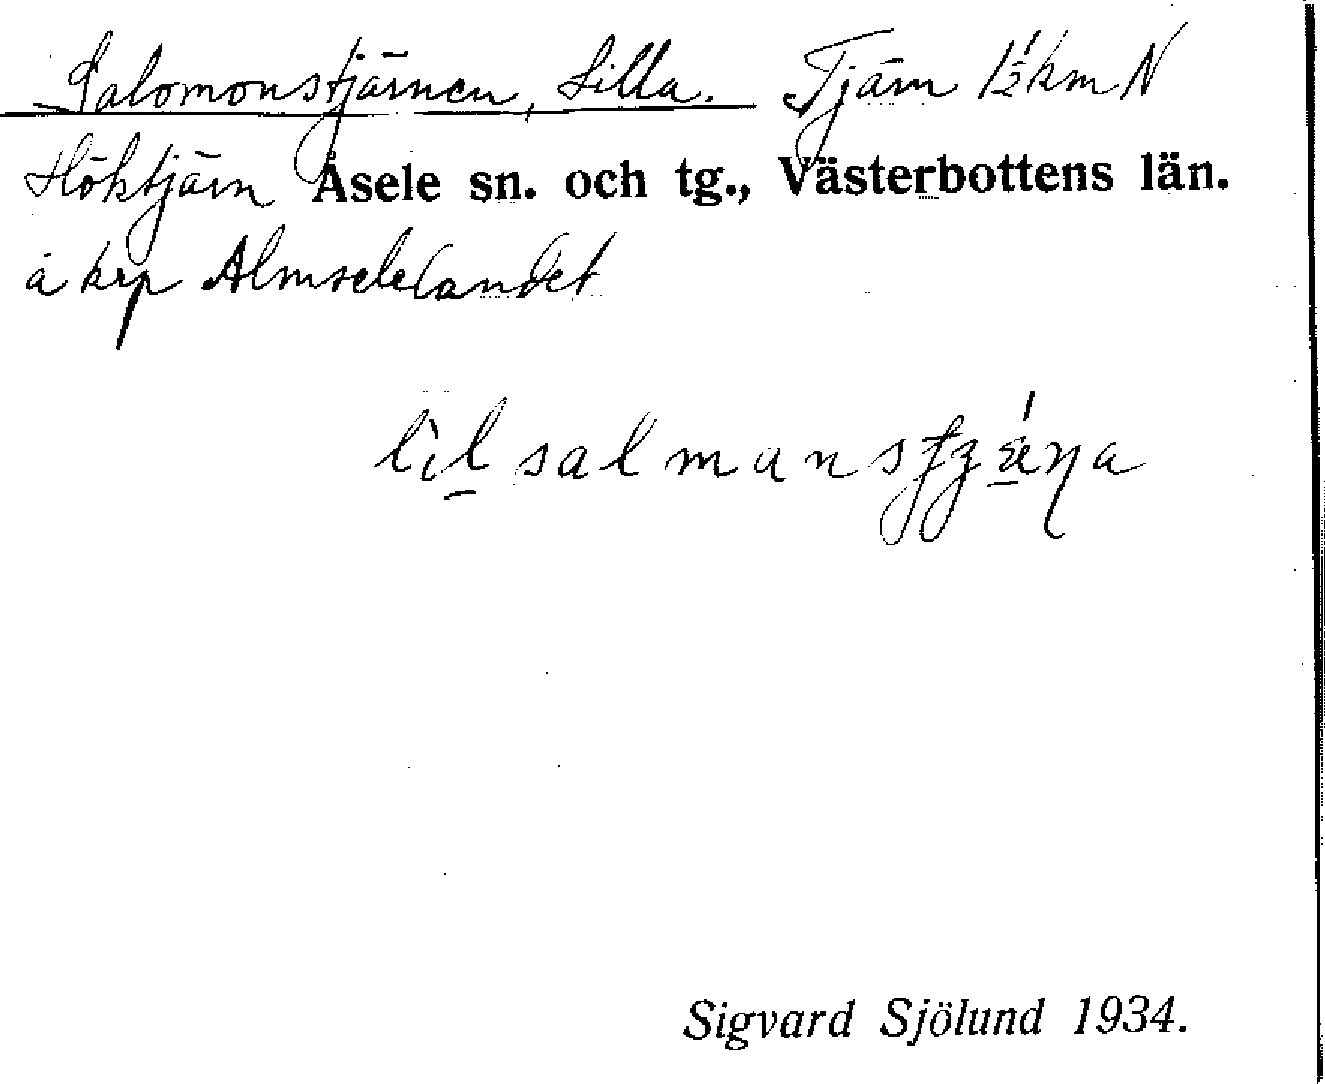 Salomonstjärnen, Lilla. Tjärn 1½ km N
Höktjärn Åsele sn. och tg., Västerbottens län.
å krp Almselelandet
Sigvard Sjölund 1934.